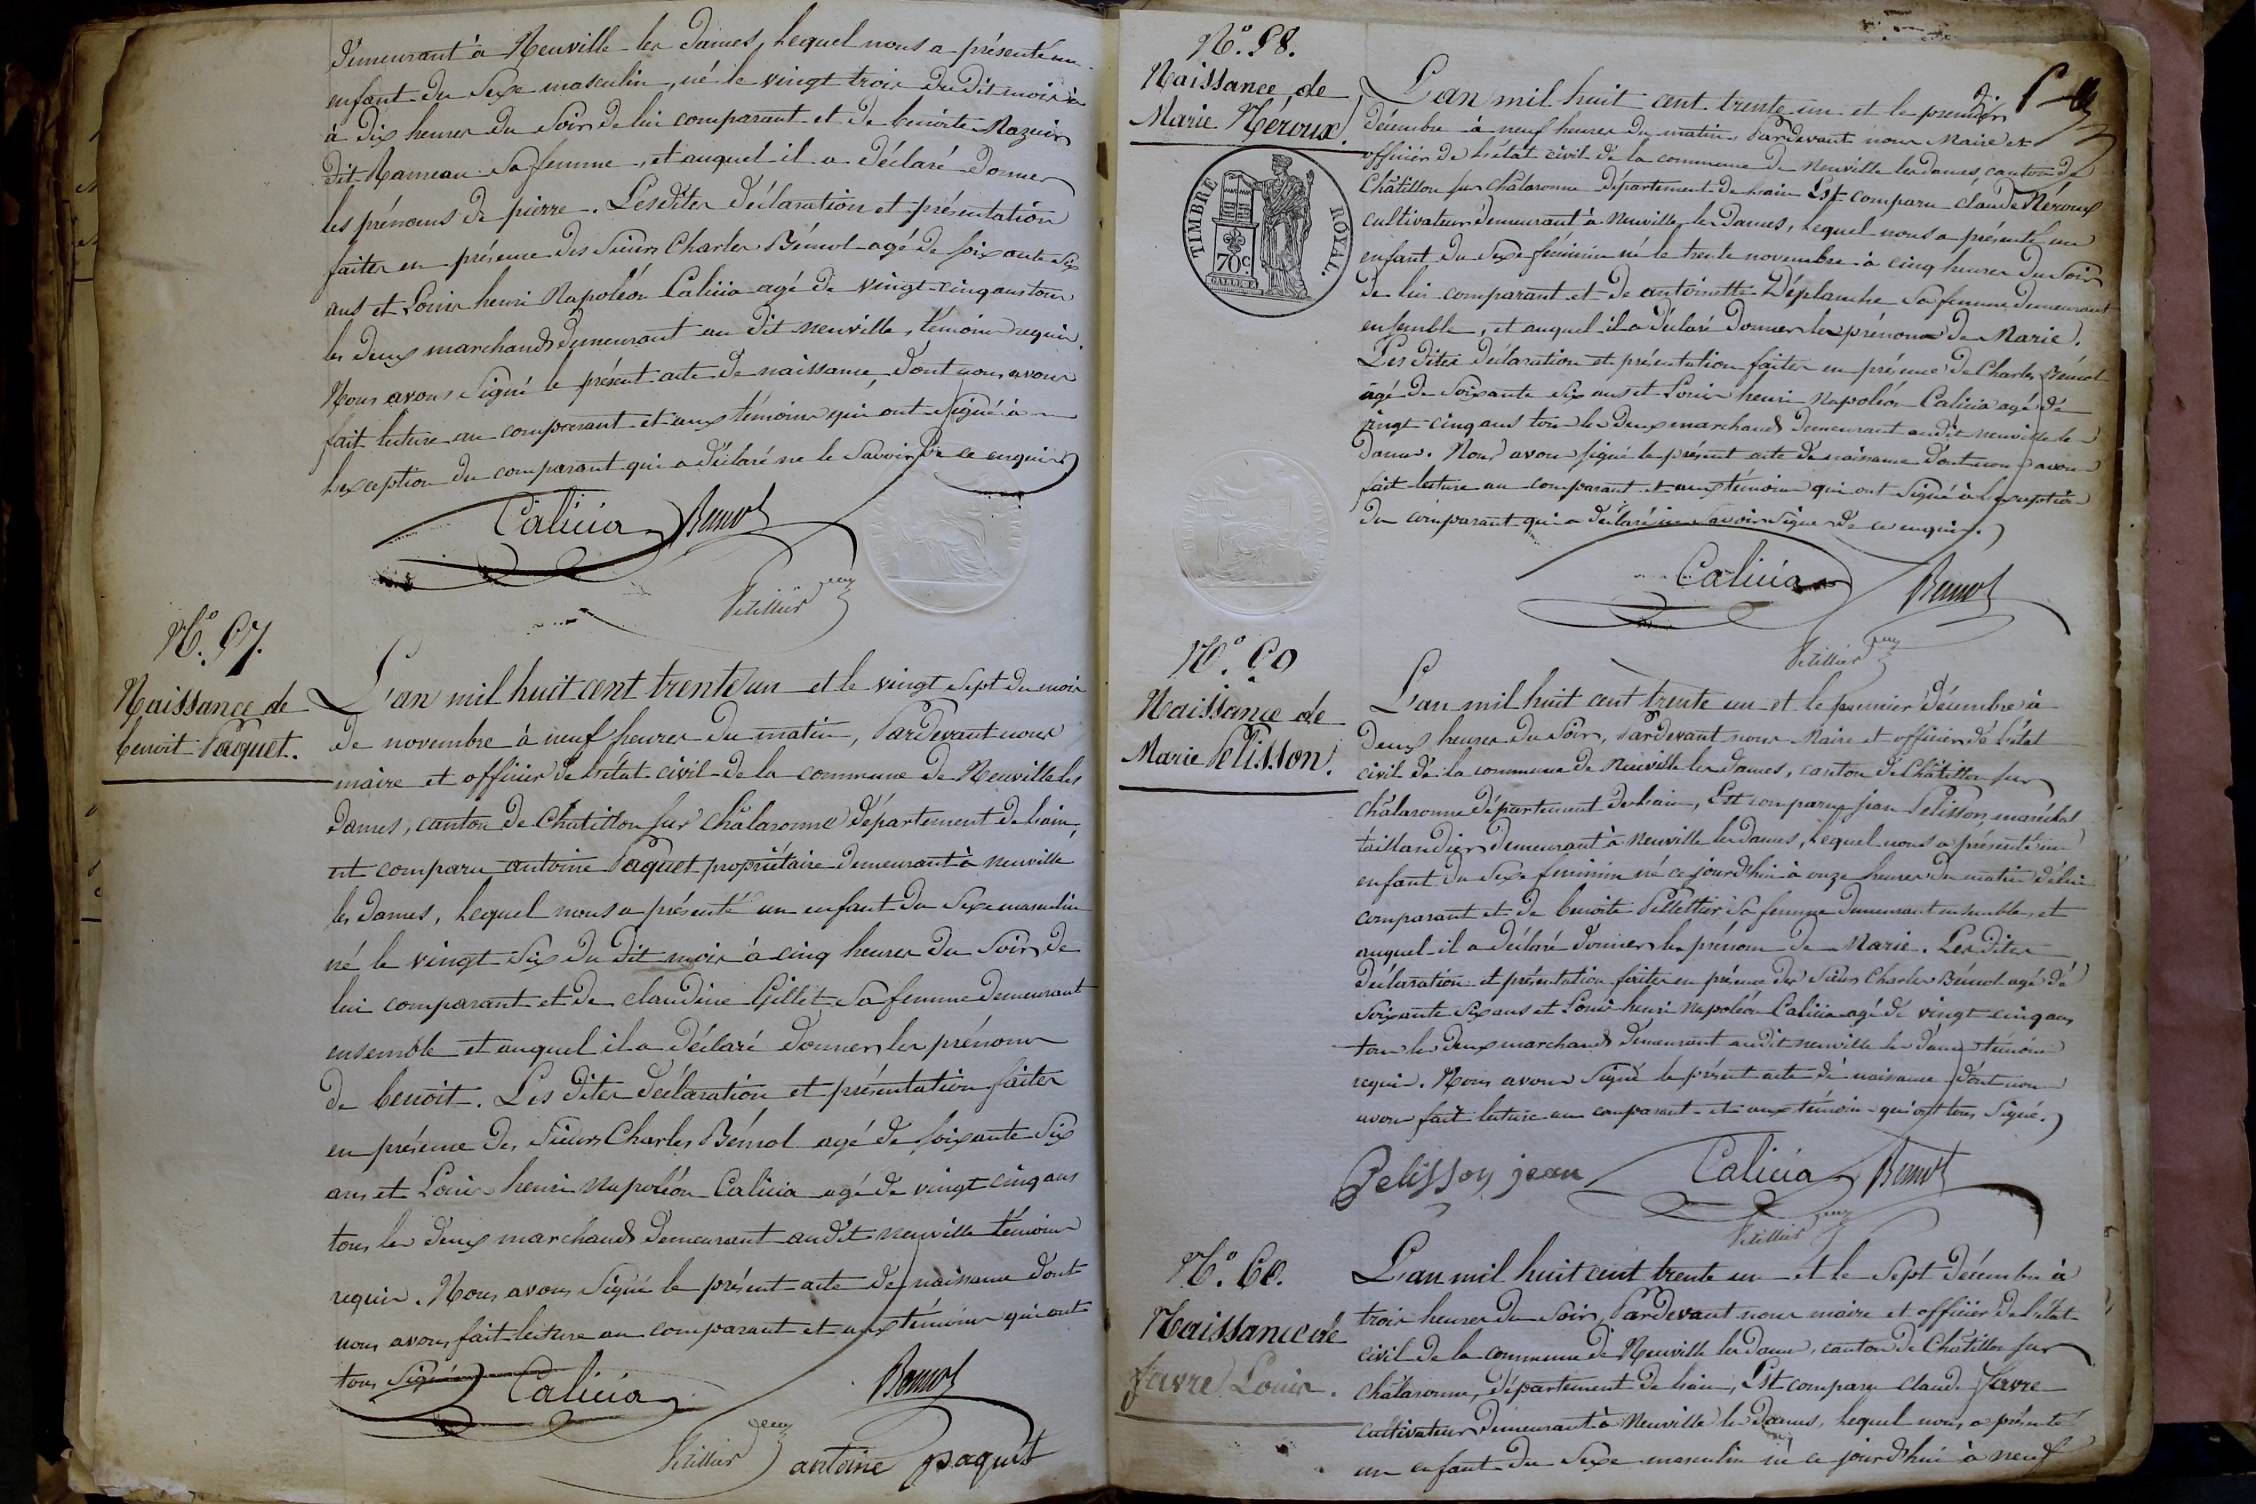 demeurant à Neuville les Dames, lequel nous a présenté un
enfant du Sexe masculin, né le vingt trois du dit mois à
à dix heures du Soir de lui comparant et de benoite Mazuir
dit Rameau Sa femme, et auquel il a déclaré donner
les prénoms de pierre. Les dites déclaration et présentation
faites en présence des Sieurs Charles Bémol agé de soixante Six
ans et Louis henri Napoléon Calicia agé de vingt cinq ans tous
les deux marchands demeurant au dit neuville, témoins requis.
Nous avons Signé le présent acte de naissance, dont nous avons
fait lecture au comparant et aux témoins qui ont Signé à
l'exception du comparant qui a déclaré ne le Savoir de ce enquis
Calicia Bemol
N° 57.
Naissance de
benoit Paquet.
L'an mil huit cent trente un et le vingt Sept du mois
de novembre à neuf heures du matin, Pardevant nous
maire et officier de l'état civil de la commune de Neuville les
Dames, canton de Chatillon sur Châlaronne département de l'ain,
est comparu antoine Paquet propriétaire demeurant à neuville
les Dames, lequel nous a présenté un enfant du Sexe masculin
né le vingt Six du dit mois à cinq heures du Soir de
lui comparant et de claudine Gillet Sa femme demeurant
ensemble et auquel il a déclaré donner les prénoms
de benoit. Les dites déclaration et présentation faites
en présence des Sieurs Charles Bémol agé de soixante Six
ans et Louis henri Napoléon Calicia agé de vingt cinq ans
tous les deux marchands demeurant audit neuville témoins
requis. Nous avons Signé le présent acte de naissance dont
nous avons fait lecture au comparant et aux témoins qui ont
tous Signé
Calicia Bemol
antoine paquet
N° 58.
Naissance de
Marie Néroux.
TIMBRE ROYAL.
70c
L'an mil huit cent trente un et le premier
décembre à neuf heures du matin, Pardevant nous Maire et
officier de l'état civil de la commune de neuville les dames, canton de
Châtillon sur châlaronne département de l'ain Est comparu claude Néroux
cultivateur demeurant à neuville les Dames, lequel nous a présenté un
enfant du Sexe féminin né le trente novembre à cinq heures du Soir
de lui comparant et de antoinette Déplanche Sa femme demeurant
ensemble, et auquel il a déclaré donner les prénoms de Marie.
Les dites déclaration et présentation faites en présence de Charles Bémol
agé de Soixante Six ans et Louis henri Napoléon Calicia agé de
vingt cinq ans tous les deux marchands demeurant audit neuville les
dames. Nous avons signé le présent acte de naissance dont nous avons
fait lecture au comparant et aux témoins qui ont Signé à l'exception
du comparant qui a déclaré ne Savoir Signer de ce enquis.
Calicia Bemol
Naissance de
Marie Pelisson.
L'an mil huit cent trente un et le premier décembre à
Deux heures du Soir, Pardevant nous Maire et officier de l'état
civil de la commune de Neuville les dames, canton de Châtillon sur
châlaronne département de l'ain, Est comparu jean Pelisson, maréchal
taillandier demeurant à neuville les dames, lequel nous a présenté un
enfant du Sexe féminin né ce jourd'hui à onze heures du matin de lui
comparant et de benoite Pelletier Sa femme demeurant ensemble, et
auquel il a déclaré donner les prénom de Marie. Les dites
déclaration et présentation faites en présence des Sieurs Charles Bémol agé de
Soixante Six ans et Louis henri Napoléon Calicia agé de vingt cinq ans
tous les deux marchands demeurant audit neuville les dames témoins
requis. Nous avons Signé le présent acte de naissance dont nous
avons fait lecture au comparant et aux témoins qui ont tous Signé.
Pelisson jean Calicia Bemol
N° 60.
Naissance de
favre Louis.
L'an mil huit cent trente un et le Sept décembre à
trois heures du Soir, Pardevant nous maire et officier de l'état
civil de la commune de Neuville les dames, canton de Châtillon sur
châlaronne, département de l'ain, Est comparu claude favre
cultivateur demeurant à Neuville les Dames, lequel nous a présenté
un enfant du Sexe masculin né ce jourd'hui à neuf